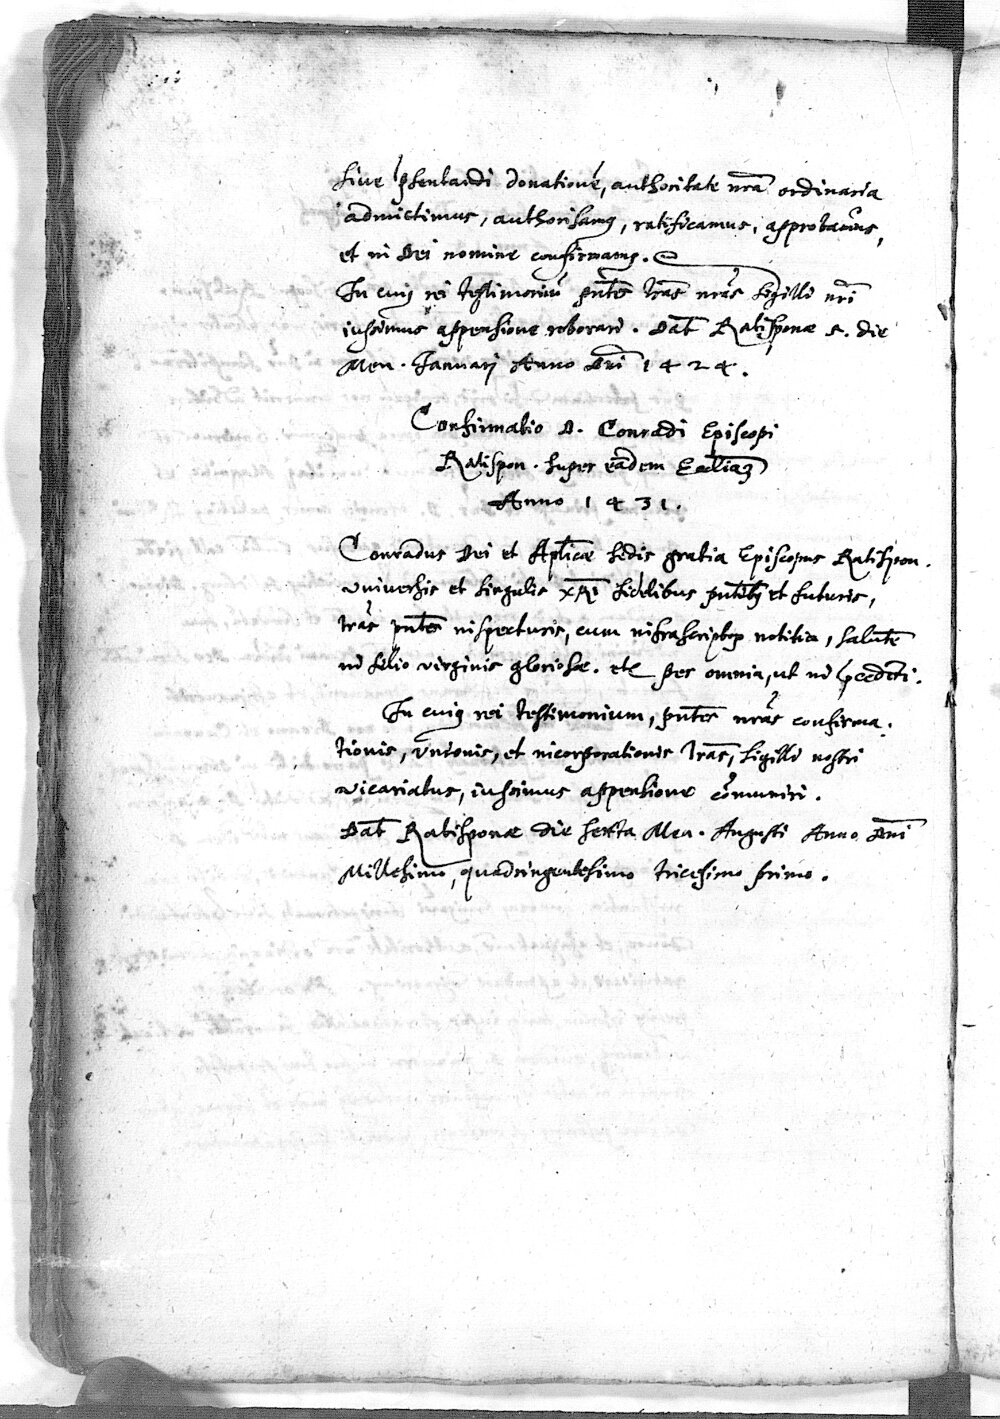 sive p̄sentandi donationē, authoritate nrā ordinaria
admittimus, authorisamꝰ, ratificamus, approbamus,
et in Dei nomine confirmamꝰ.
In cuiꝰ rei testimoniū pn̄tes lrās nrās sigilli nrī
iussimus appensione roborari. Dat̄ Ratisponæ 5. die
Men. Januarij Anno Dn̄i 1424.
Confirmatio D. Conradi Episcopi
Ratispon. super eādem Eccliaꝫ
Anno 1431.
Conradus Dei et Aplicæ sedis gratia Episcopus Ratispon.
vniversis et singulis XRi fidelibus pn̄tibꝫ et futuris,
lrās pn̄tes inspecturis, cum infrascriptoꝝ notitia, salutē
in filio virginis gloriosæ. etc per omnia, ut in p̄cedēti.
In cuiꝰ rei testimonium, pn̄tes nrās confirma-
tionis, vnionis, et incorporationis lrās, sigilli nostri
vicariatus, iussimus appensione cōmuniri.
Dat̄ Ratisponæ die sexta Men. Augusti Anno Dn̄i
Millesimo, quadringentesimo tricesimo primo.